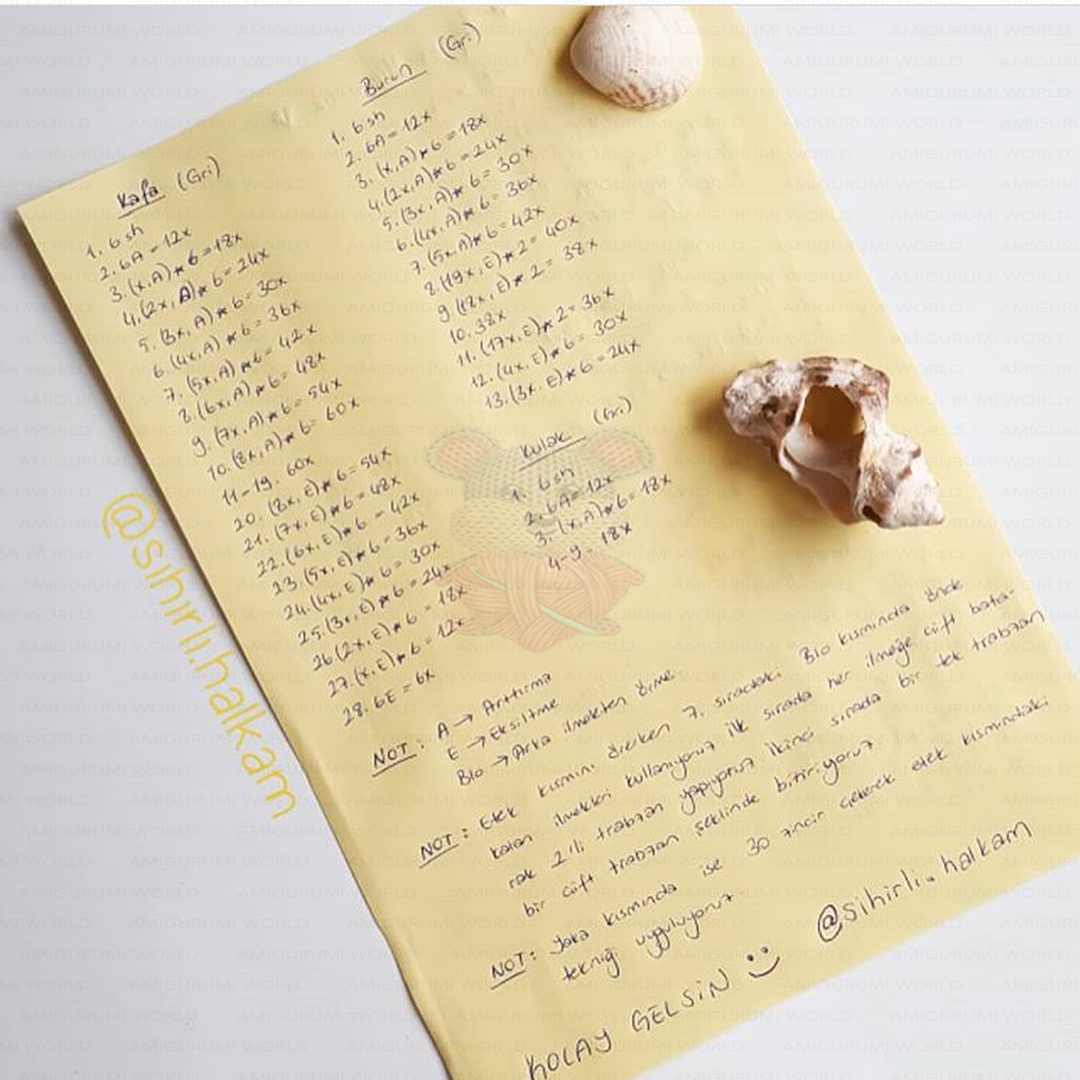 Kafa (Gri)
1. 6 sh
2. 6A = 12x
3. (x,A)*6 = 18x
4. (2x,A)*6 = 24x
5. (3x,A)*6 = 30x
6. (4x,A)*6 = 36x
7. (5x,A)*6 = 42x
8. (6x,A)*6 = 48x
9. (7x,A)*6 = 54x
10. (8x,A)*6 = 60x
11-19. 60x
20. (8x,E)*6 = 54x
21. (7x,E)*6 = 48x
22. (6x,E)*6 = 42x
23. (5x,E)*6 = 36x
24. (4x,E)*6 = 30x
25. (3x,E)*6 = 24x
26 (2x,E)*6 = 18x
27. (x,E)*6 = 12x
28. 6E = 6x
Burun (Gri)
1. 6 sh
2. 6A = 12x
3. (x,A)*6 = 18x
4. (2x,A)*6 = 24x
5. (3x,A)*6 = 30x
6. (4x,A)*6 = 36x
7. (5x,A)*6 = 42x
8 (19x,E)*2 = 40x
9 (18x,E)*2 = 38x
10. 38x
11. (17x,E)*2 = 36x
12. (4x,E)*6 = 30x
13. (3x,E)*6 = 24x
Kulak (Gri)
1. 6 sh
2. 6A = 12x
3. (x,A)*6 = 18x
4-9. 18x
NOT : A → Arttırma
E → Eksiltme
Blo → Arka ilmekten örme
NOT : Etek kısmını örerken 7. sıradaki Blo kısmında önde
kalan ilmekleri kullanıyoruz. İlk sırada her ilmeğe çift bata-
rak 2'li trabzan yapıyoruz. İkinci sırada bir tek trabzan
bir çift trabzan şeklinde bitiriyoruz.
NOT : Yaka kısmında ise 30 zincir çekerek etek kısmındaki
tekniği uyguluyoruz.
KOLAY GELSİN @sihirli.halkam
@sihirli.halkam
AMIGURUMI WORLD